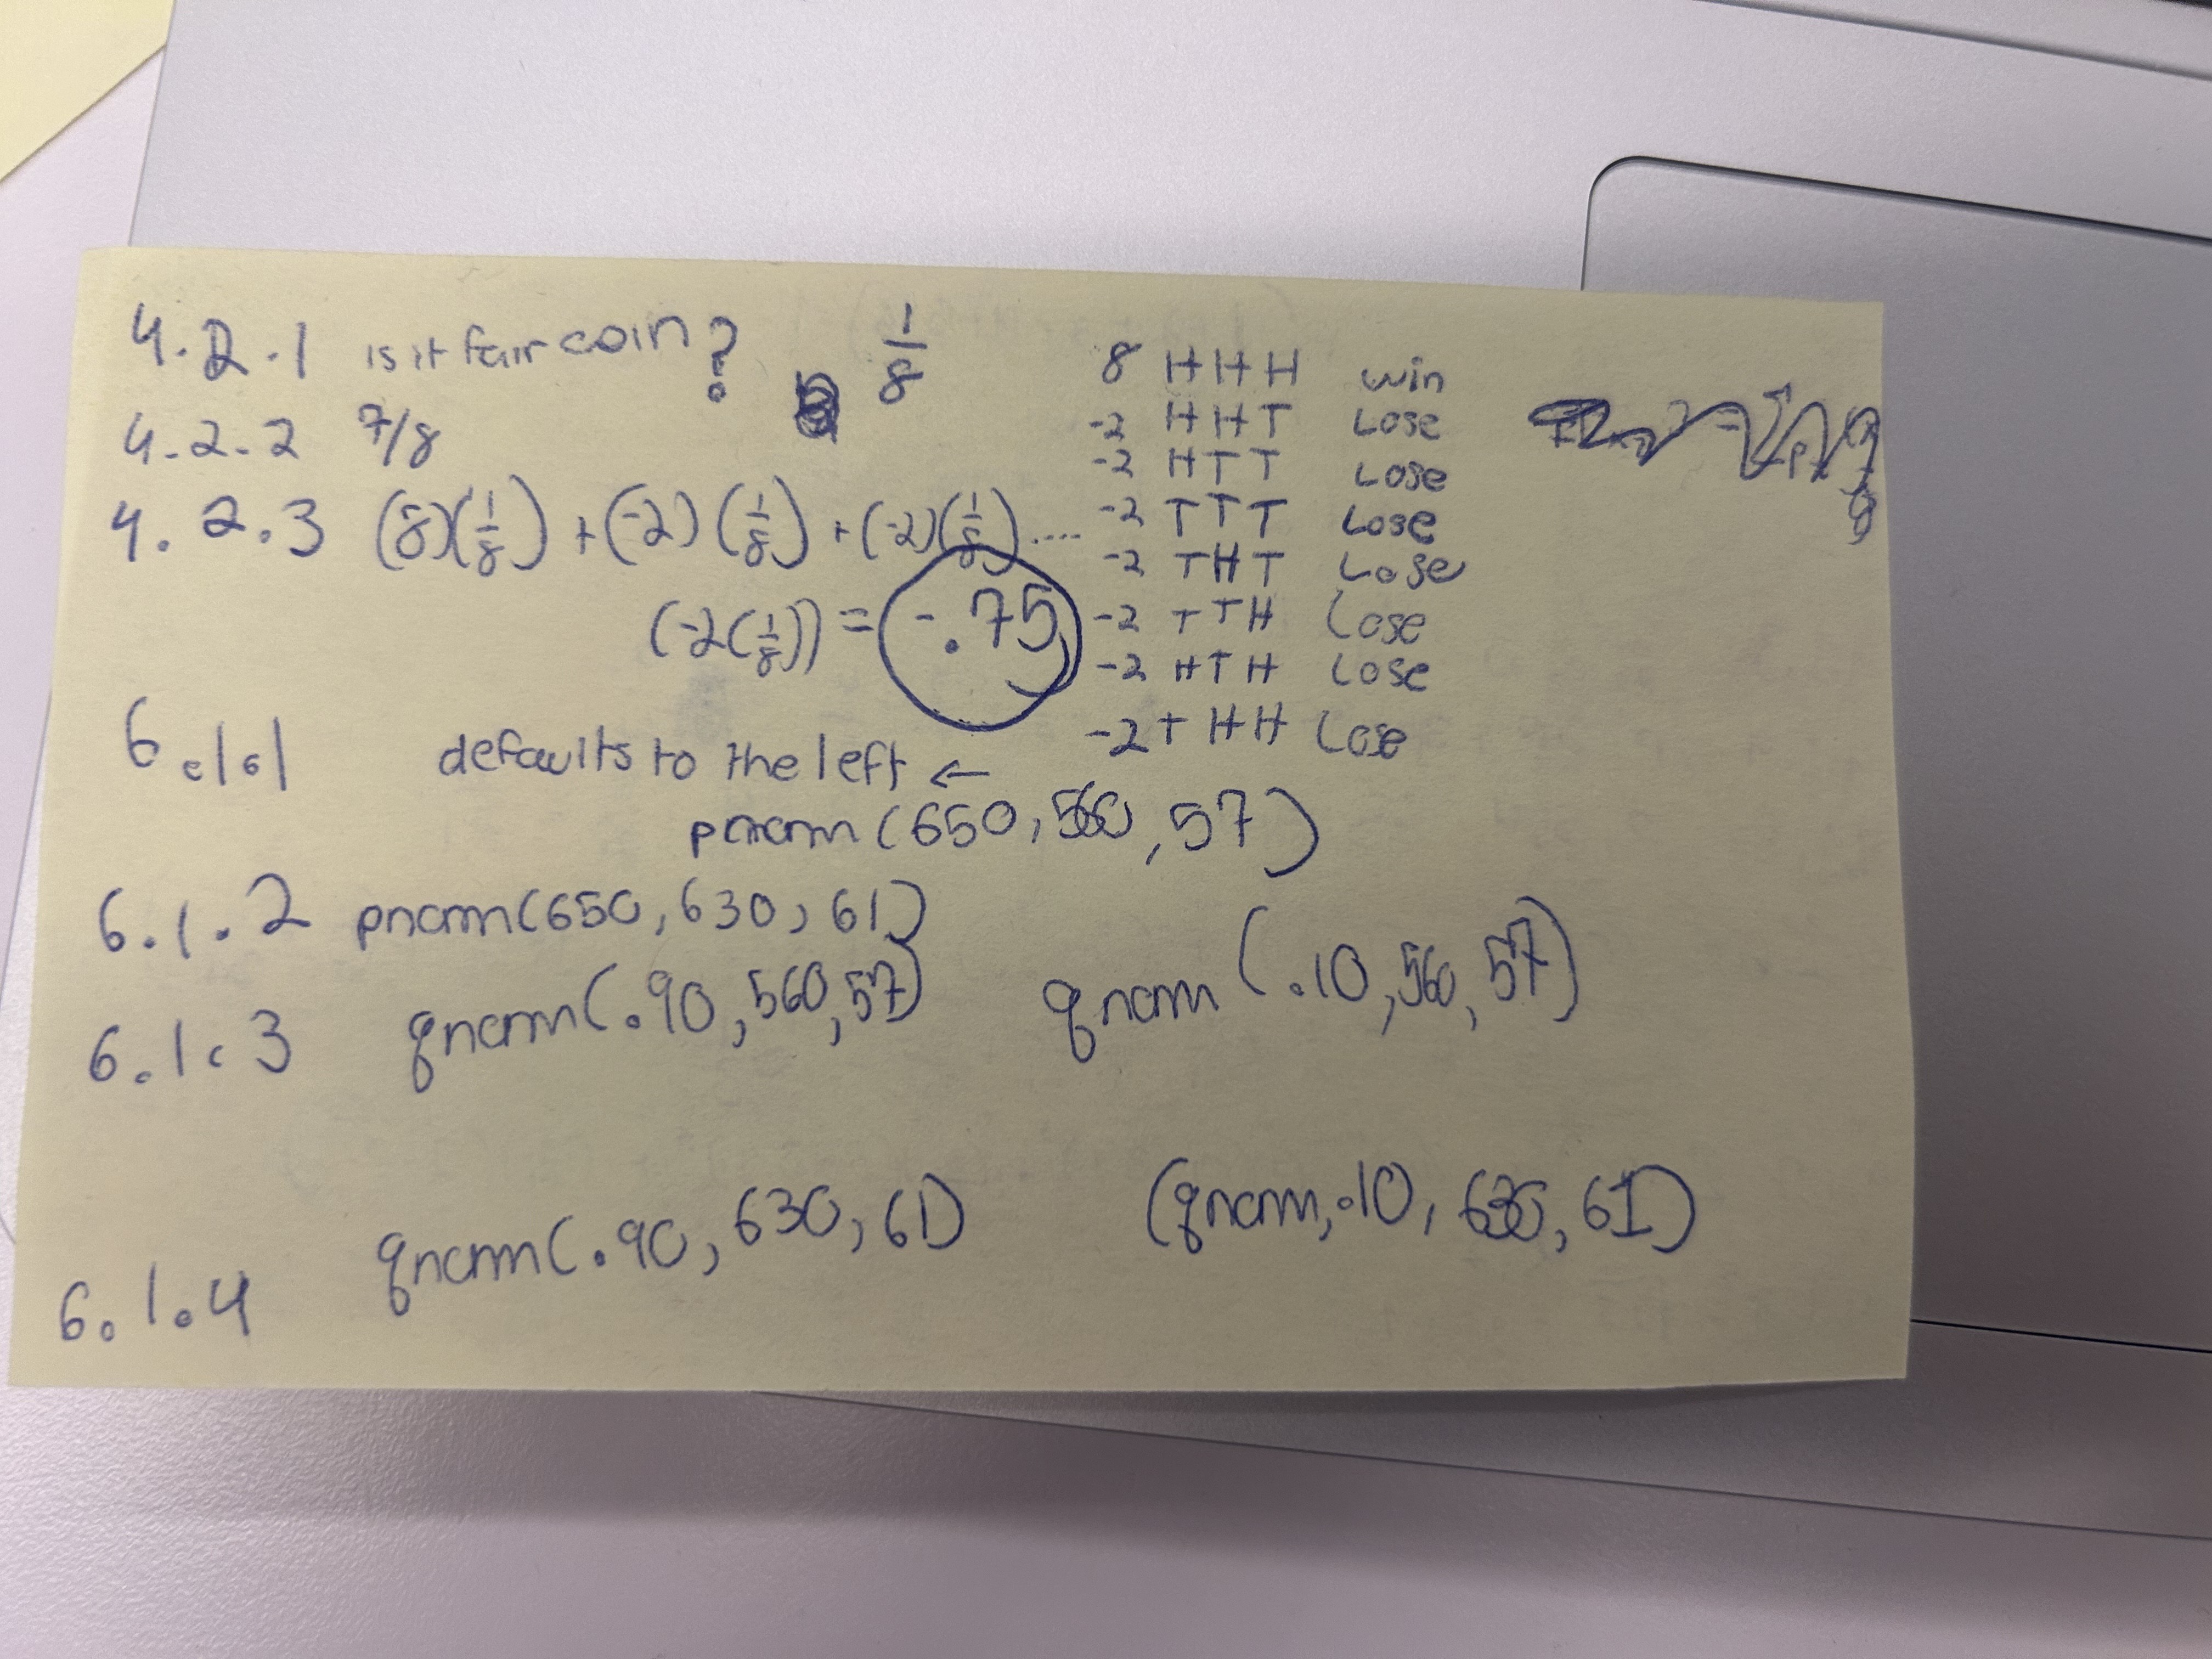 4.2.1 is it fair coin? 1/8
4.2.2 7/8
4.2.3 (8)(1/8) + (-2)(1/8) + (-2)(1/8) ....
(-2(1/8)) = -.75
8 HHH win
-2 HHT Lose
-2 HTT Lose
-2 TTT Lose
-2 THT Lose
-2 TTH Lose
-2 HTH Lose
-2 THH Lose
6.1.1 defaults to the left ←
pnorm(650, 560, 57)
6.1.2 pnorm(650, 630, 61)
6.1.3 qnorm(.90, 560, 57) qnorm(.10, 560, 57)
6.1.4 qnorm(.90, 630, 61) (qnorm, .10, 630, 61)